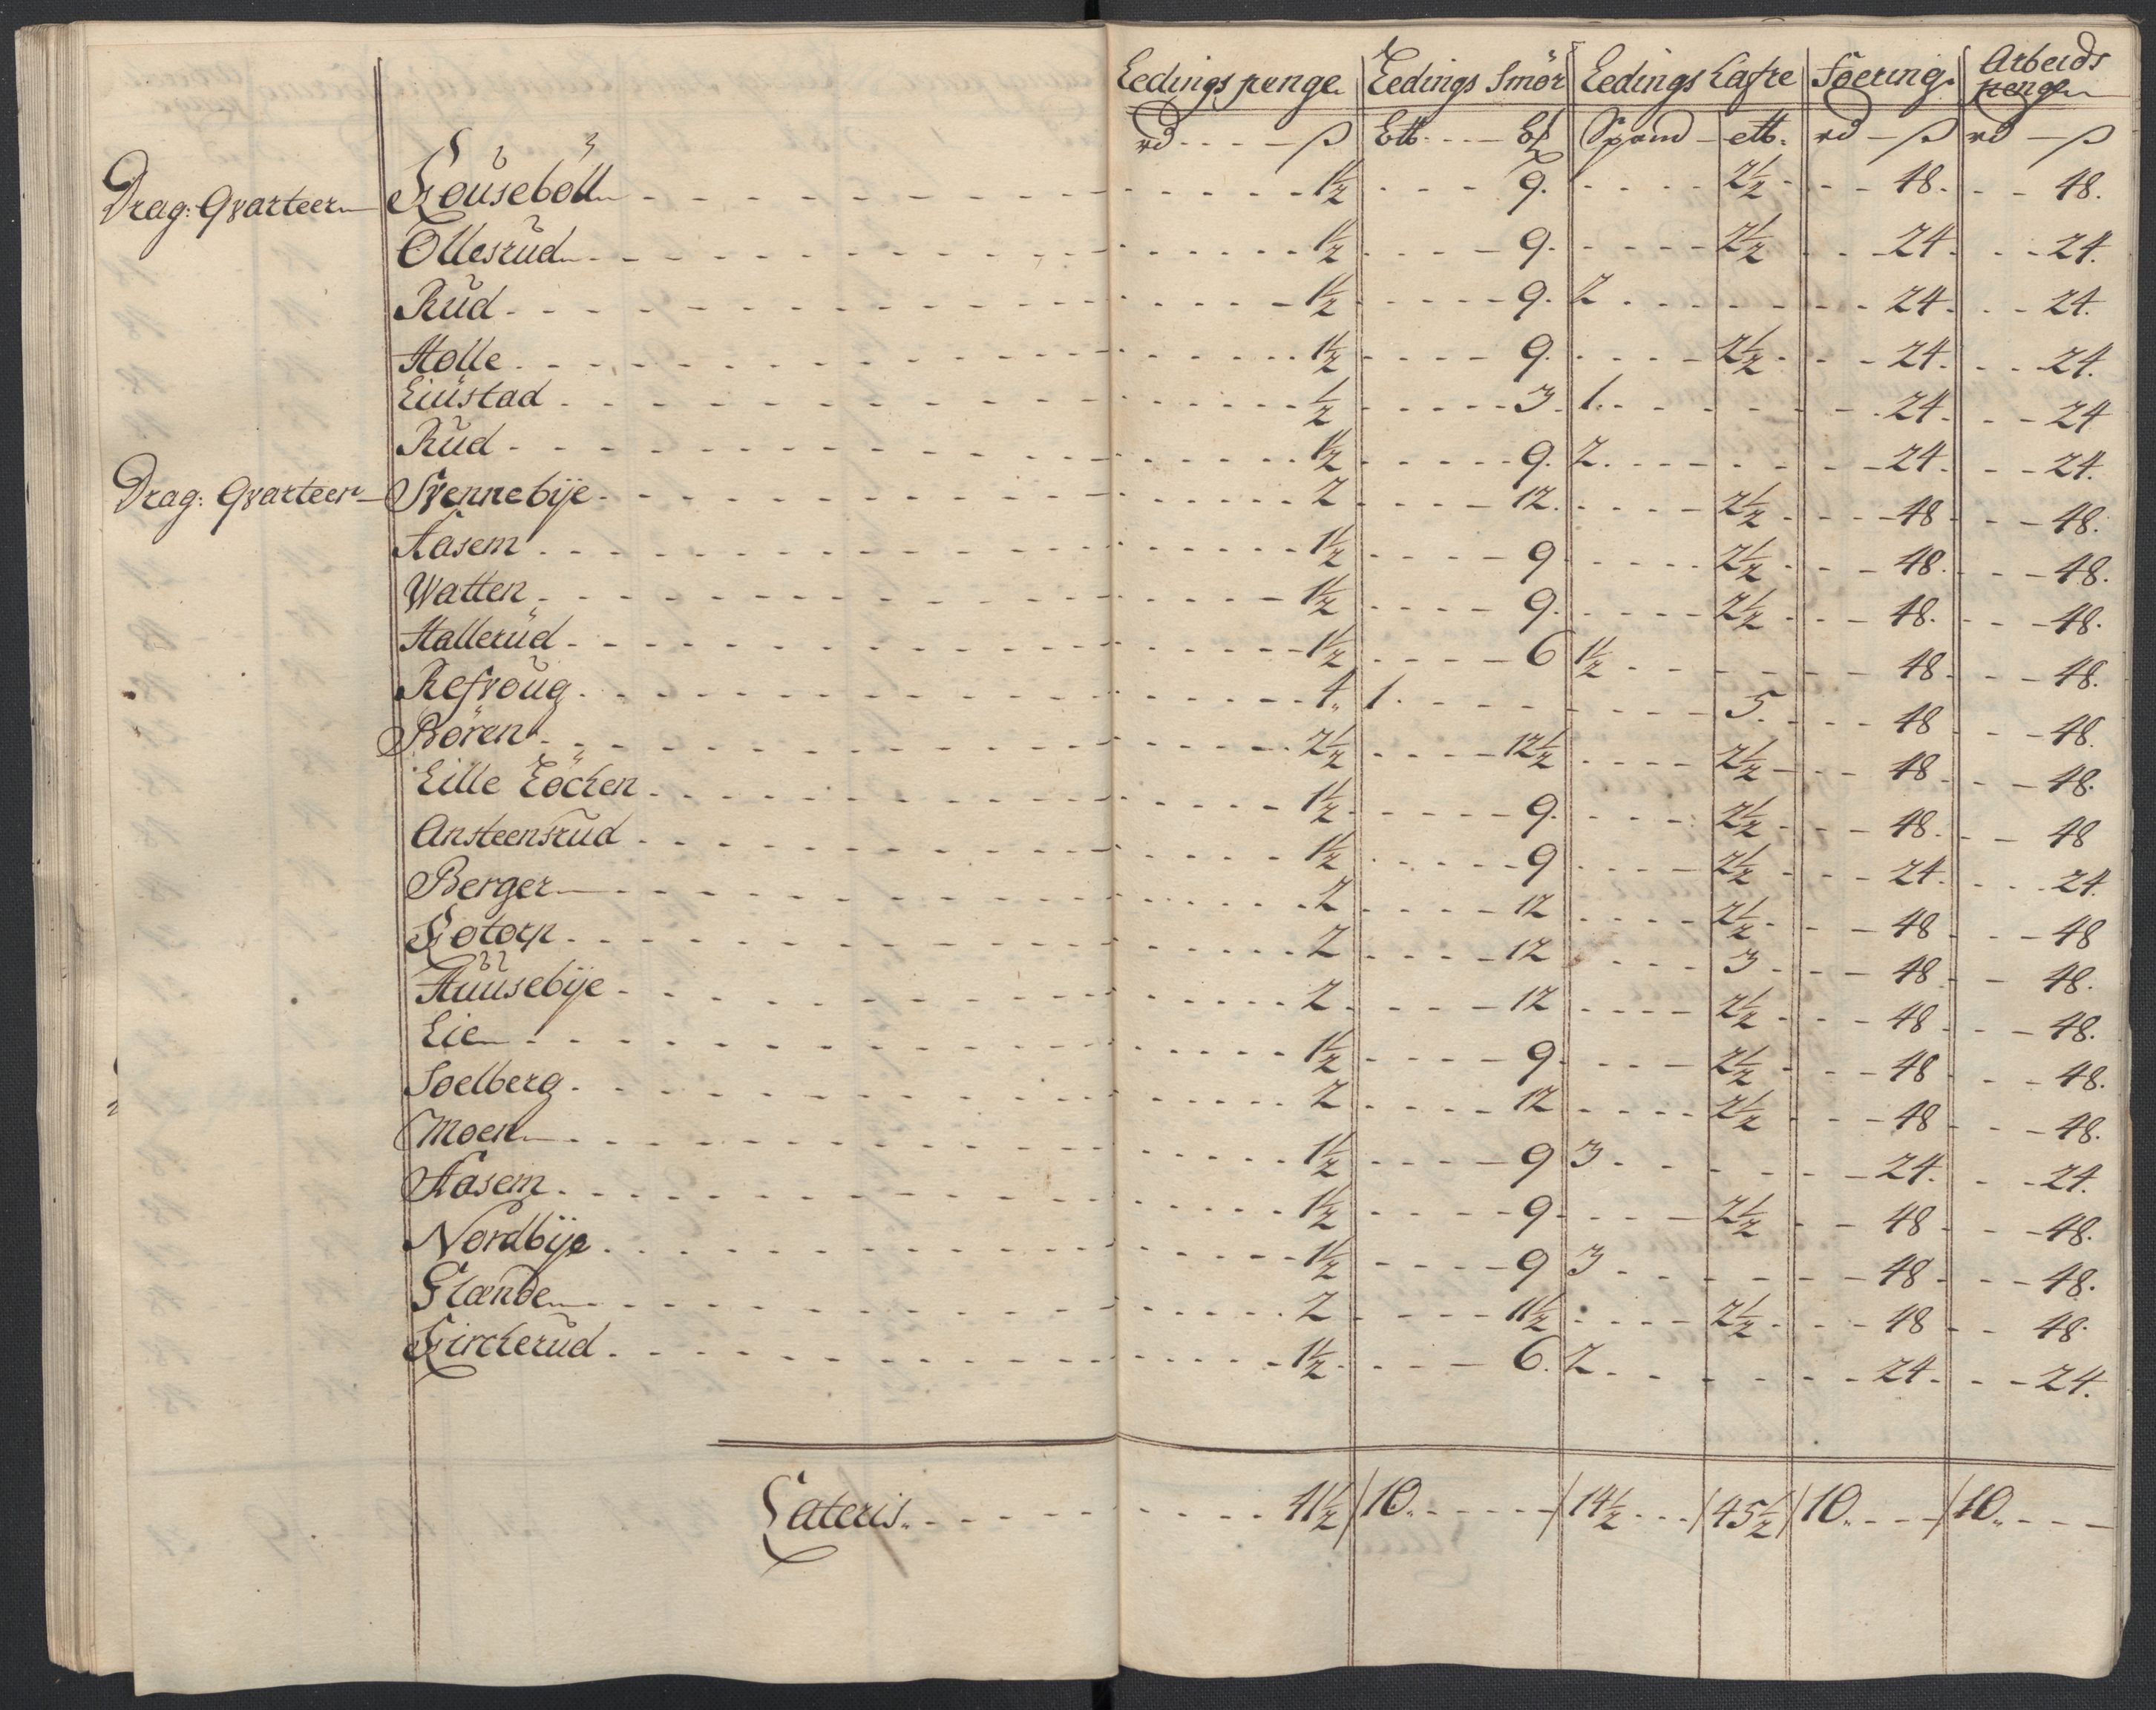 Ledings penge Ledings Smör Ledings Hafre Foering Arbeids penge
rd - ß Spand rd - ß rd - ß
Drag: Qvarteer Kouseböll 1½ 9. 2½ 48. 48.
Ollesrud 1½ 9. 2½ 24. 24.
Rud 1½ 9. 2 24. 24.
Holle 1½ 9. 2½ 24. 24.
Liustad ½ 3. 1. 24. 24
Rud 1½ 9. 2. 24. 24.
Drag: Qvarteer Svennebÿe 2 12. 2½ 48 48.
Aasem 1½ 9 2½ 48. 48.
Watten 1½ 9. 2½ 48. 48.
Hallerud 1½ 6 1½ 48. 48.
Refsoug 4. 1. 5. 48 48.
Bören 2½ 12½ 2½ 48 48.
Lille Löcken 1½ 9. 2½ 48. 48
Ansteensrud 1½ 9 2½ 24. 24.
Berger 2 12 2½ 48 48
Kotorp 2 12 3 48 48.
Huusebÿe 2 12 2½ 48 48.
Lie 1½ 9 2½ 48 48.
Soelberg 2 12 2½ 48 48.
Moen 1½ 9 3 24. 24.
Aasem 1½ 9 2½ 48 48.
Nordbÿe 1½ 9 3 48 48.
Grande 2 11½ 2½ 48 48.
Kirckerud 1½ 6. 2 24. 24.
Lateris 41½ 10. 14½ 45½ 10. 10.